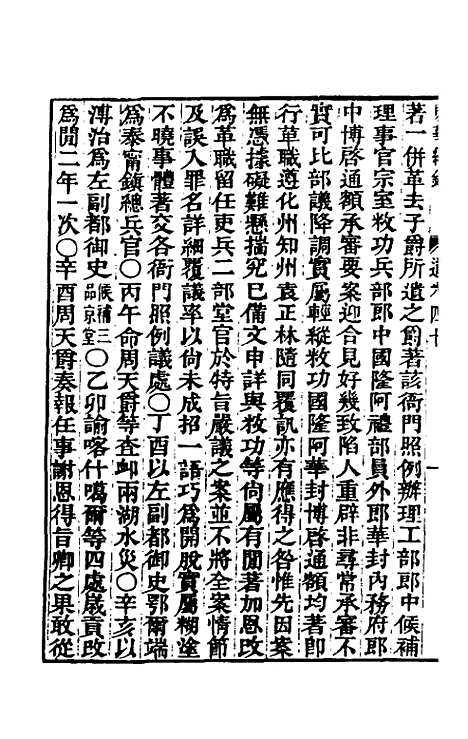 著一併革去子爵所遺之爵著該衙門照例辦理工部郎中候補
理事官宗室敉功兵部郎中國隆阿禮部員外郎華封內務府郎
中博啓通額承審要案迎合見好幾致陷人重辟非尋常承審不
實可比部議降調實屬輕縱敉功國隆阿華封博啓通額均著即
行革職遵化州知州袁正林隨同覆訊亦有應得之咎惟先因案
無憑據礙難懸揣究已備文申詳與敉功等尙屬有閒著加恩改
爲革職留任吏兵二部堂官於特旨嚴議之案並不將全案情節
及誤入罪名詳細覆議率以尙未成招一語巧爲開脫實屬糊塗
不曉事體著交各衙門照例議處〇丁酉以左副都御史鄂爾端
爲泰甯鎭總兵官〇丙午命周天爵等查卹兩湖水災〇辛亥以
溥治爲左副都御史候補三品京堂〇乙卯諭喀什噶爾等四處歲貢改
爲閒二年一次〇辛酉周天爵奏報任事謝恩得旨卿之果敢從